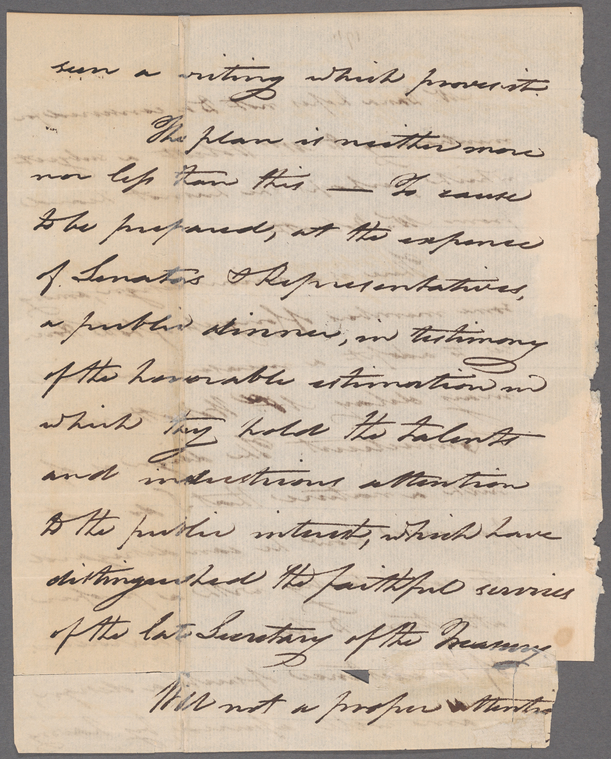 seen a writing which proves it.
The plan is neither more
nor less than this — To cause
to be prepared, at the expense
of Senators & Representatives,
a public dinner, in testimony
of the honorable estimation in
which they hold the talents
and industrious attention
to the public interest, which have
distinguished the faithful services
of the late Secretary of the Treasury
Will not a proper attentio